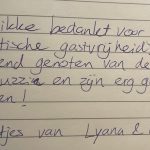 ikke bedankt voor
tische gastvrijheid
end genoten van de
uzzi en zijn erg g
en!
tjes van Lyana &